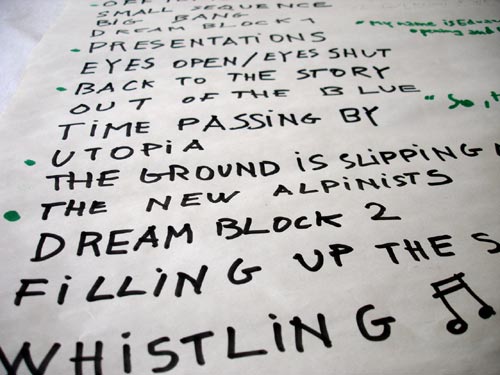 SMALL SEQUENCE
BIG BANG
DREAM BLOCK 1
PRESENTATIONS
EYES OPEN/EYES SHUT
BACK TO THE STORY
OUT OF THE BLUE
TIME PASSING BY
UTOPIA
THE GROUND IS SLIPPING
THE NEW ALPINISTS
DREAM BLOCK 2
FILLING UP THE S
WHISTLING
"My name is Ed
opening and
"So,